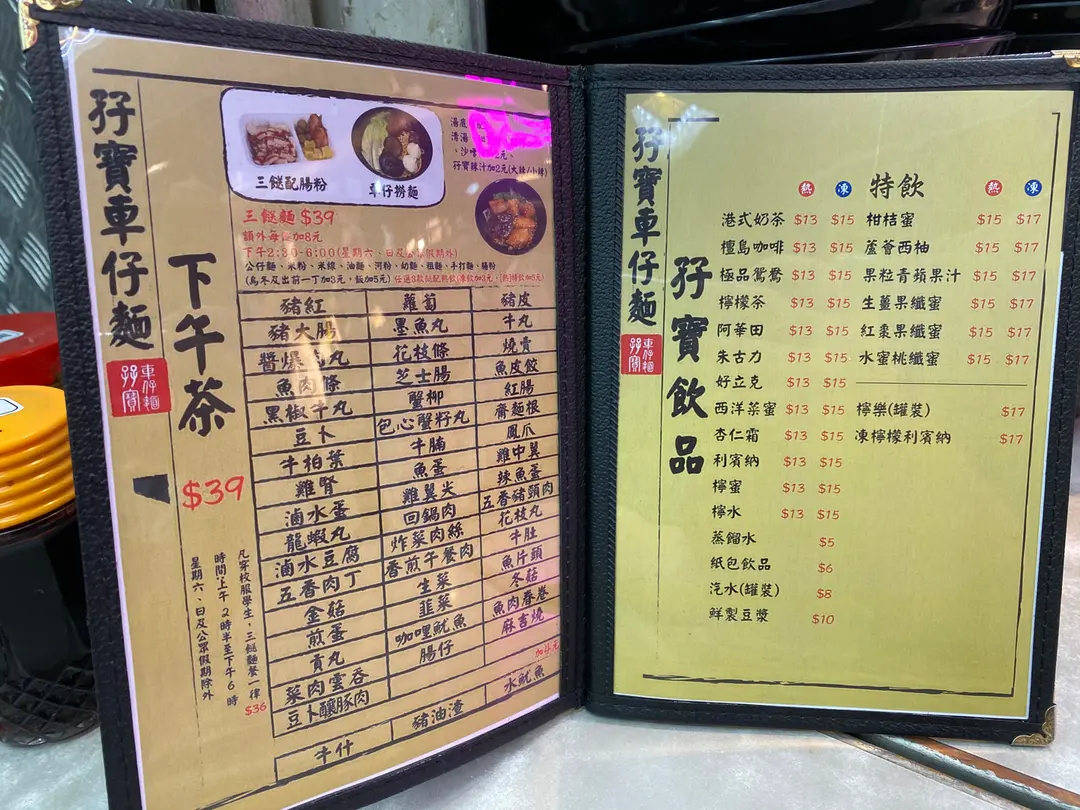 孖寶車仔麵
車仔麵
孖寶
下午茶
$39
凡穿校服學生，三餸麵餐一律
$36
時間:上午2時半至下午6時
星期六、日及公眾假期除外
三餸配腸粉
車仔撈麵
湯底
清湯
孖寶辣汁加2元(大辣/小辣)
三餸麵 $39
額外每餸加8元
下午2:30-6:00(星期六、日及公眾假期除外)
公仔麵、米粉、米線、油麵、河粉、幼麵、粗麵、手打麵、腸粉
(烏冬及出前一丁加3元，飯加5元)
豬紅 蘿蔔 豬皮
豬大腸 墨魚丸 牛丸
醬爆 丸 花枝條 燒賣
魚肉條 芝士腸 魚皮餃
黑椒牛丸 蟹柳 紅腸
豆卜 包心蟹籽丸 齋麵根
牛柏葉 牛腩 鳳爪
雞腎 魚蛋 雞中翼
滷水蛋 雞翼尖 辣魚蛋
龍蝦丸 回鍋肉 五香豬頸肉
滷水豆腐 炸菜肉絲 花枝丸
五香肉丁 香煎午餐肉 牛肚
金菇 生菜 魚片頭
煎蛋 韮菜 冬菇
貢丸 咖哩魷魚 魚肉春卷
菜肉雲吞 腸仔 麻吉燒
豆卜釀豚肉
牛什 豬油渣 水魷魚
孖寶車仔麵
車仔麵
孖寶
孖寶飲品
熱 凍 特飲 熱 凍
港式奶茶 $13 $15 柑桔蜜 $15 $17
檀島咖啡 $13 $15 蘆薈西柚 $15 $17
極品鴛鴦 $13 $15 果粒青蘋果汁 $15 $17
檸檬茶 $13 $15 生薑果纖蜜 $15 $17
阿華田 $13 $15 紅棗果纖蜜 $15 $17
朱古力 $13 $15 水蜜桃纖蜜 $15 $17
好立克 $13 $15
西洋菜蜜 $13 $15 檸樂(罐裝) $17
杏仁霜 $13 $15 凍檸檬利賓納 $17
利賓納 $13 $15
檸蜜 $13 $15
檸水 $13 $15
蒸餾水 $5
紙包飲品 $6
汽水(罐裝) $8
鮮製豆漿 $10